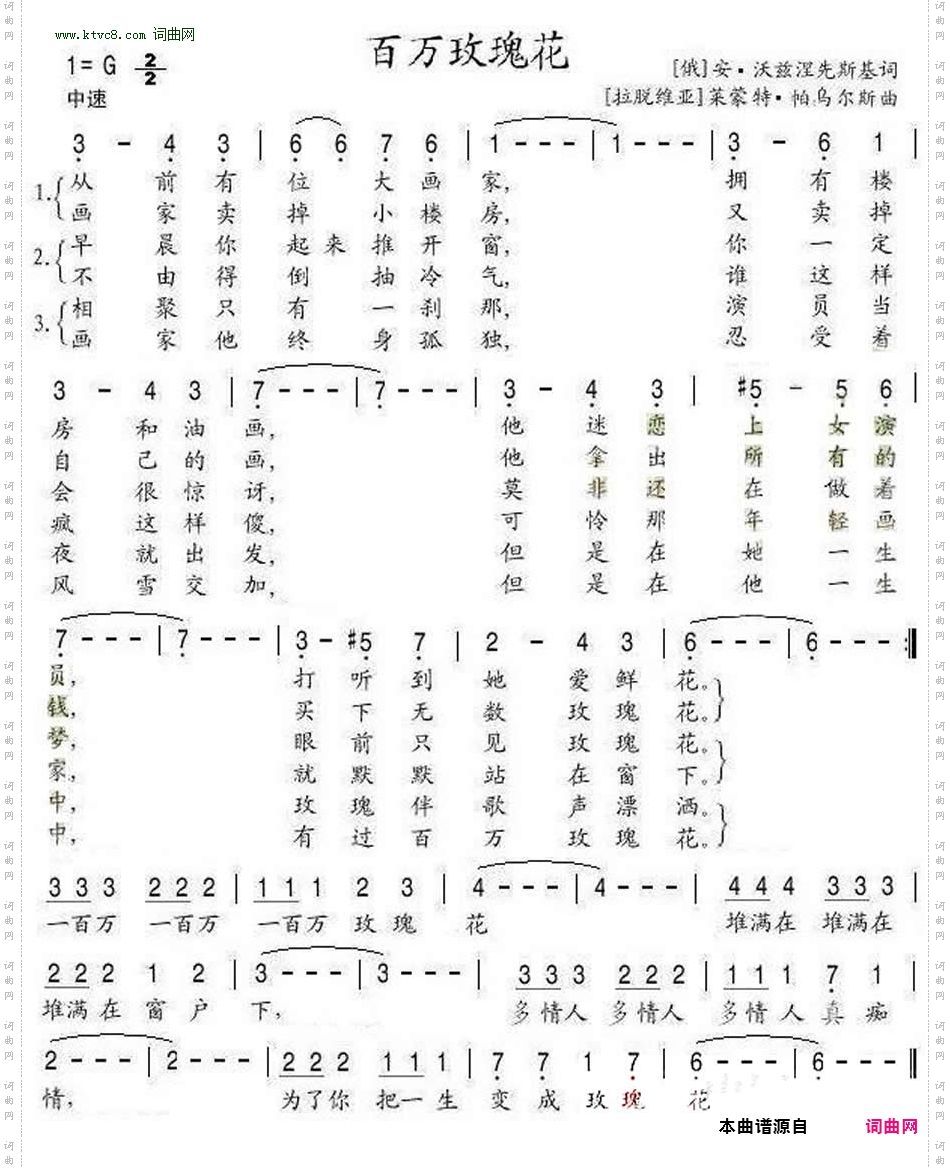 www.ktvc8.com 词曲网
百万玫瑰花
1=G 2/2
[俄]安·沃兹涅先斯基词
中速
[拉脱维亚]莱蒙特·帕乌尔斯曲
3 - 4 3 | 6 6 7 6 | 1 - - - | 1 - - - | 3 - 6 1 |
1. 从前有位大画家, 拥有楼
画家卖掉小楼房, 又卖掉
2. 早晨你起来推开窗, 你一定
不由得倒抽冷气, 谁这样
3. 相聚只有一刹那, 演员当
画家他终身孤独, 忍受着
3 - 4 3 | 7 - - - | 7 - - - | 3 - 4 3 | #5 - 5 6 |
房和油画, 他迷恋上女演
自己的画, 他拿出所有的
会很惊讶, 莫非还在做着
疯这样傻, 可怜那年轻画
夜就出发, 但是在她一生
风雪交加, 但是在他一生
7 - - - | 7 - - - | 3 - #5 7 | 2 - 4 3 | 6 - - - | 6 - - - :|
员, 打听到她爱鲜花。
钱, 买下无数玫瑰花。
梦, 眼前只见玫瑰花。
家, 就默默站在窗下。
中, 玫瑰伴歌声漂洒。
中, 有过百万玫瑰花。
3 3 3 2 2 2 | 1 1 1 2 3 | 4 - - - | 4 - - - | 4 4 4 3 3 3 |
一百万 一百万 一百万 玫瑰花 堆满在 堆满在
2 2 2 1 2 | 3 - - - | 3 - - - | 3 3 3 2 2 2 | 1 1 1 7 1 |
堆满在窗户下, 多情人 多情人 多情人真痴
2 - - - | 2 - - - | 2 2 2 1 1 1 | 7 7 1 7 | 6 - - - | 6 - - - ||
情, 为了你 把一生 变成玫瑰花
本曲谱源自 词曲网